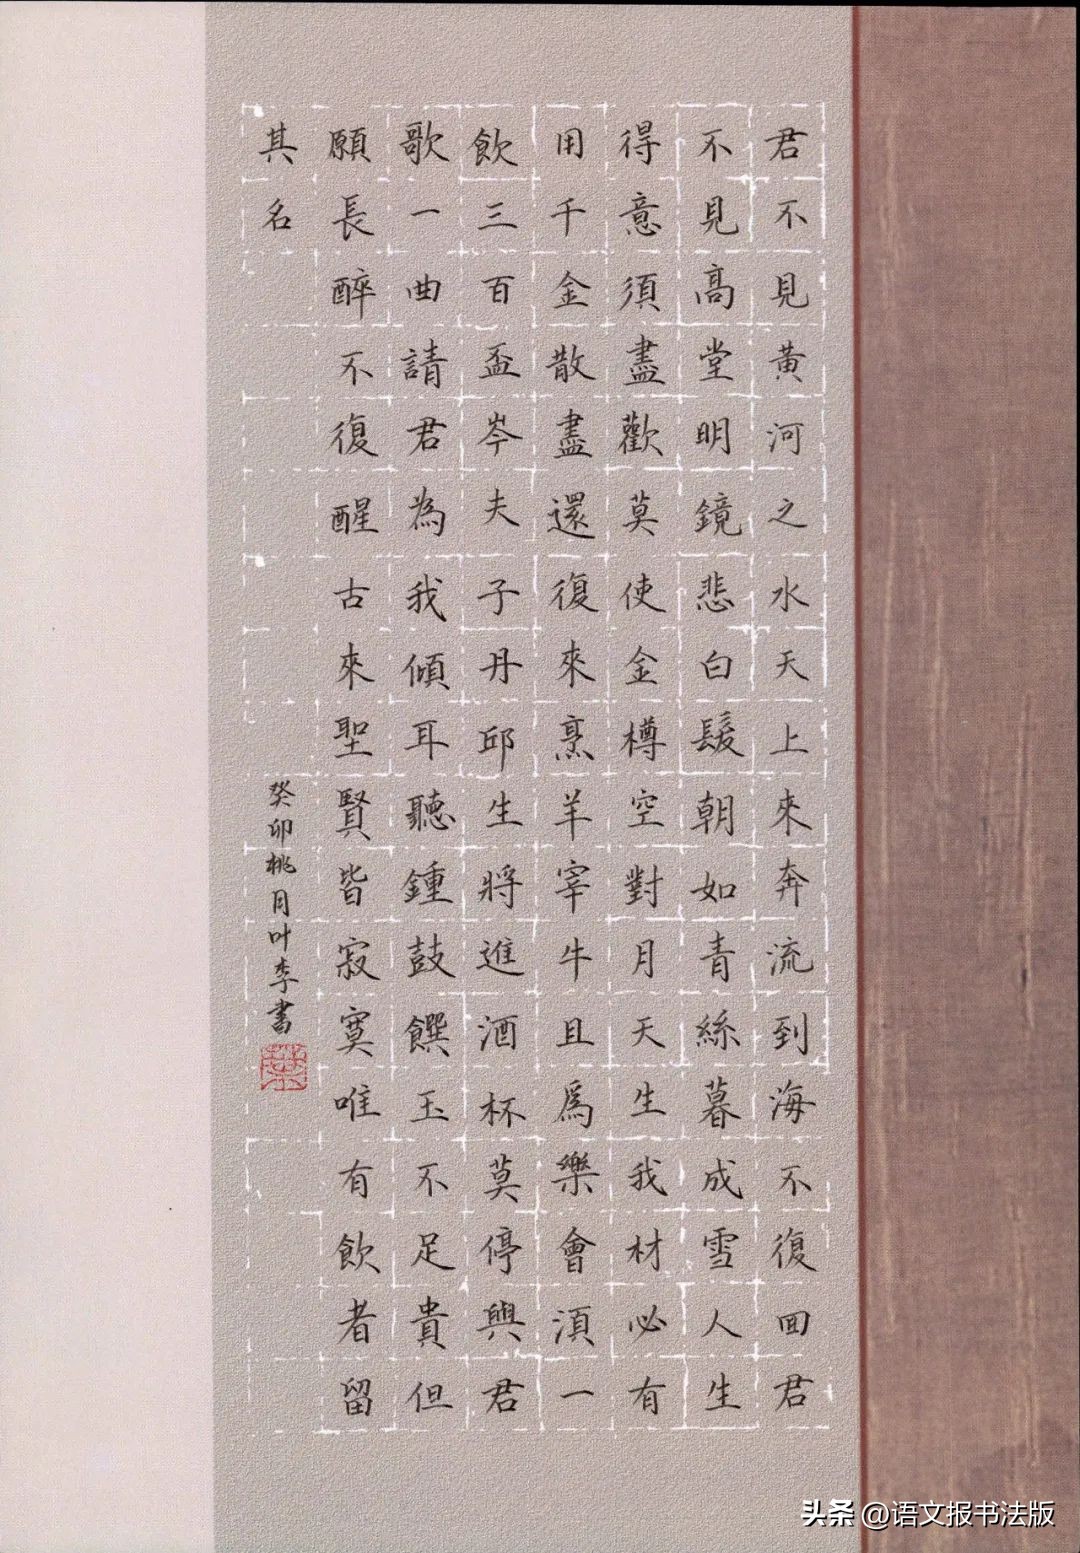 君不見黃河之水天上來奔流到海不復回君
不見高堂明鏡悲白髮朝如青絲暮成雪人生
得意須盡歡莫使金樽空對月天生我材必有
用千金散盡還復來烹羊宰牛且為樂會須一
飲三百盃岑夫子丹邱生將進酒杯莫停與君
歌一曲請君為我傾耳聽鍾鼓饌玉不足貴但
願長醉不復醒古來聖賢皆寂寞唯有飲者留
其名
癸卯桃月叶李書
頭条 @语文报书法版